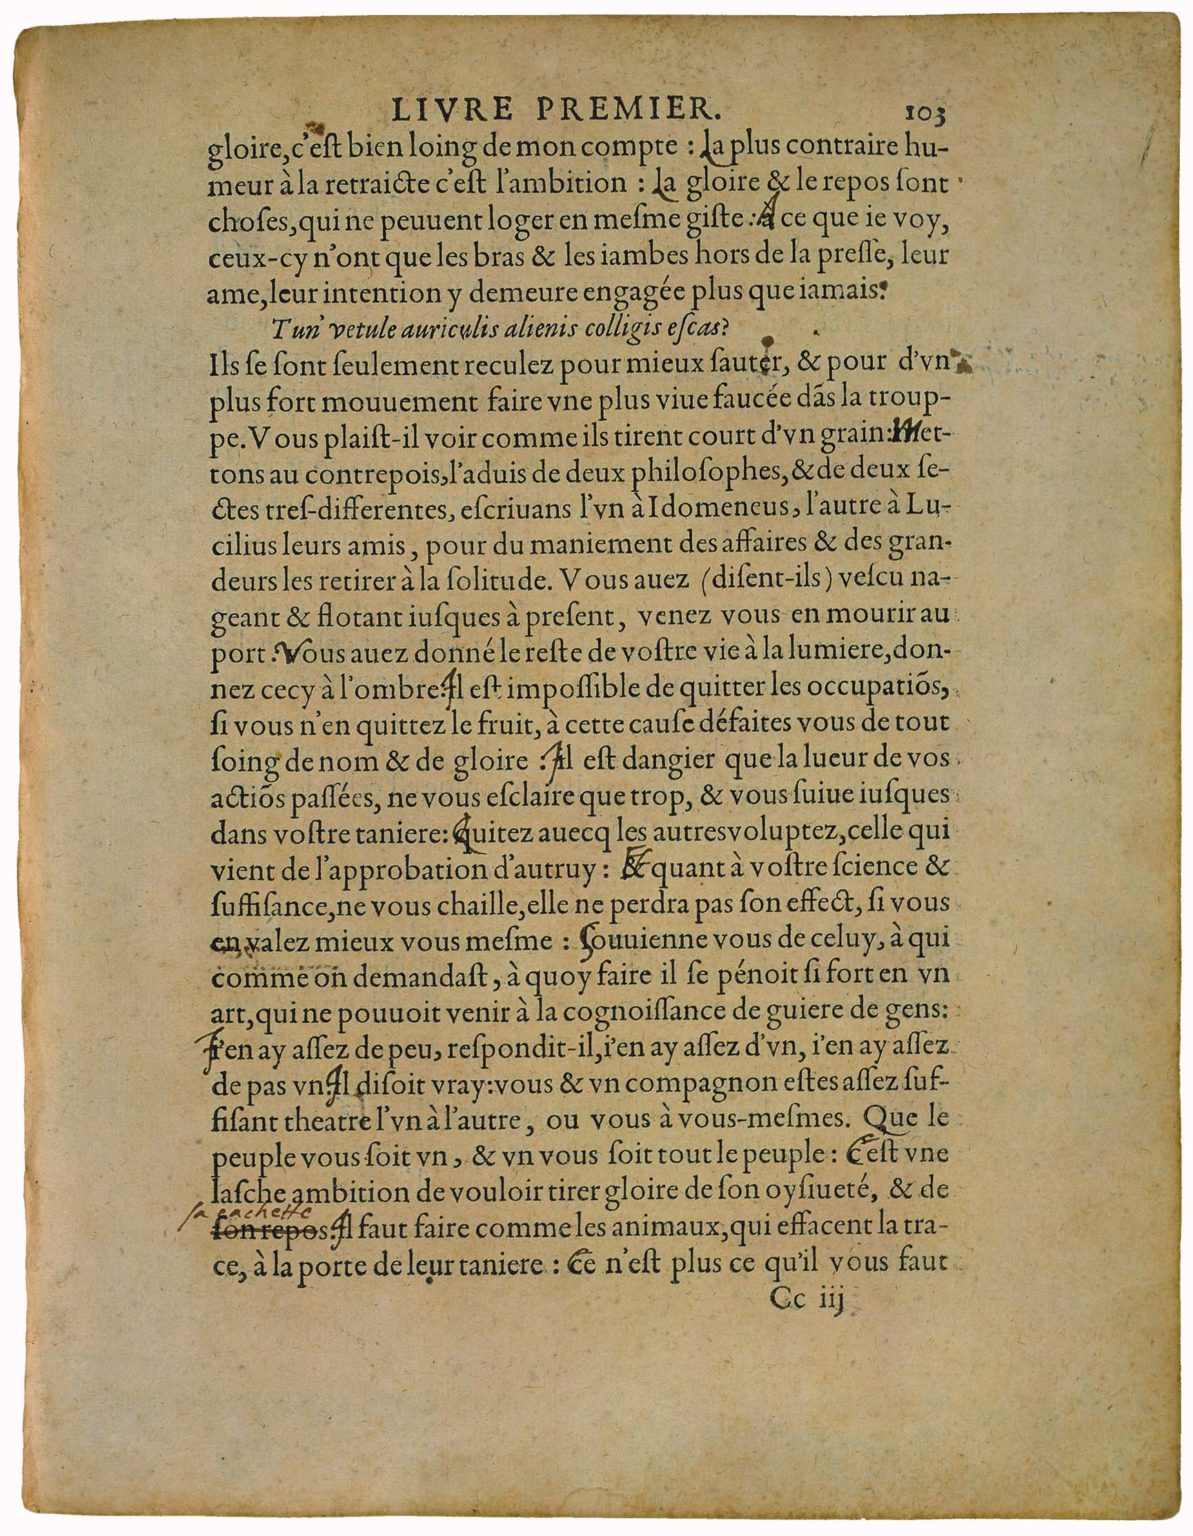 LIVRE PREMIER. 103
gloire,c'est bien loing de mon compte : La plus contraire hu-
meur à la retraicte c'eſt l'ambition : La gloire & le repos ſont
choſes,qui ne peuuent loger en meſme giſte : A ce que ie voy,
ceux-cy n'ont que les bras & les iambes hors de la preſſe, leur
ame,leur intention y demeure engagée plus que iamais:
Tun' vetule auriculis alienis colligis eſcas?
Ils ſe ſont ſeulement reculez pour mieux ſauter, & pour d'vn
plus fort mouuement faire vne plus viue faucée dãs la troup-
pe. Vous plaiſt-il voir comme ils tirent court d'vn grain: Met-
tons au contrepois,l'aduis de deux philoſophes,&de deux ſe-
ctes treſ-differentes, eſcriuans l'vn à Idomeneus, l'autre à Lu-
cilius leurs amis, pour du maniement des affaires & des gran-
deurs les retirer à la ſolitude. Vous auez (diſent-ils) veſcu na-
geant & flotant iuſques à preſent, venez vous en mourir au
port : Vous auez donné le reſte de voſtre vie à la lumiere,don-
nez cecy à l'ombre: Il eſt impoſſible de quitter les occupatiõs,
ſi vous n'en quittez le fruit, à cette cauſe défaites vous de tout
ſoing de nom & de gloire : Il eſt dangier que la lueur de vos
actiõs paſſées, ne vous eſclaire que trop, & vous ſuiue iuſques
dans voſtre taniere: Quitez auecq les autres voluptez,celle qui
vient de l'approbation d'autruy : Et quant à voſtre ſcience &
ſuffiſance,ne vous chaille,elle ne perdra pas ſon effect, ſi vous
en valez mieux vous meſme : Souuienne vous de celuy, à qui
comme on demandaſt, à quoy faire il ſe pénoit ſi fort en vn
art,qui ne pouuoit venir à la cognoiſſance de guiere de gens:
I'en ay aſſez de peu, reſpondit-il,i'en ay aſſez d'vn, i'en ay aſſez
de pas vn: Il diſoit vray:vous & vn compagnon eſtes aſſez ſuf-
fiſant theatre l'vn à l'autre, ou vous à vous-meſmes. Que le
peuple vous ſoit vn, & vn vous ſoit tout le peuple : C'eſt vne
laſche ambition de vouloir tirer gloire de ſon oyſiueté, & de
sa cachette
ſon repos: Il faut faire comme les animaux,qui effacent la tra-
ce, à la porte de leur taniere : Ce n'eſt plus ce qu'il vous faut
Cc iij